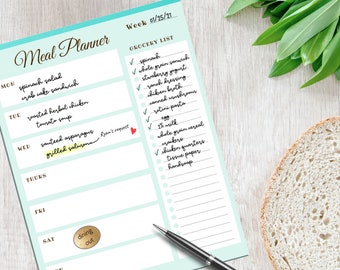 Meal Planner
Week 01/25/21
GROCERY LIST
MON
spinach salad
crab cake sandwich
TUE
roasted herbal chicken
tomato soup
WED
sauteed asparagus
grilled salmon
THURS
FRI
SAT
dining
out
spinach
whole grain
strawberry yogurt
ranch dressing
chicken broth
canned mushrooms
pasta
egg
milk
whole grain cereal
crackers
chicken quarters
tissue paper
handsoap